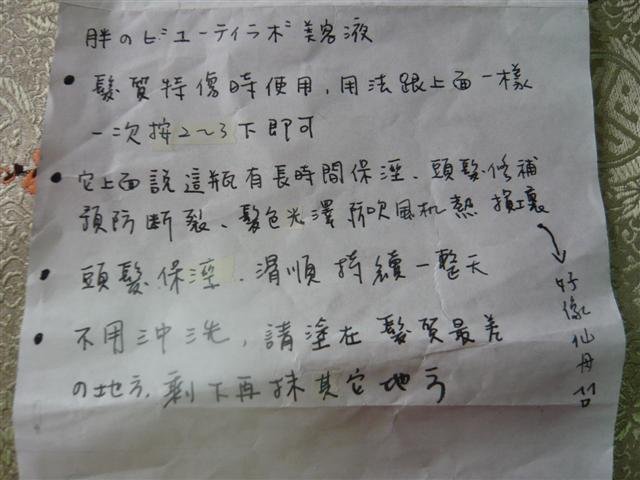 胖のビューティラボ美容液
• 髮質特傷時使用,用法跟上面一樣
一次按2~3下即可
• 它上面說這瓶有長時間保溼、頭髮修補
預防斷裂、髮色光澤防吹風机熱損壞
• 頭髮保溼、滑順持續一整天
• 不用沖洗,請塗在髮質最差
の地方,剩下再抹其它地方
好像仙丹